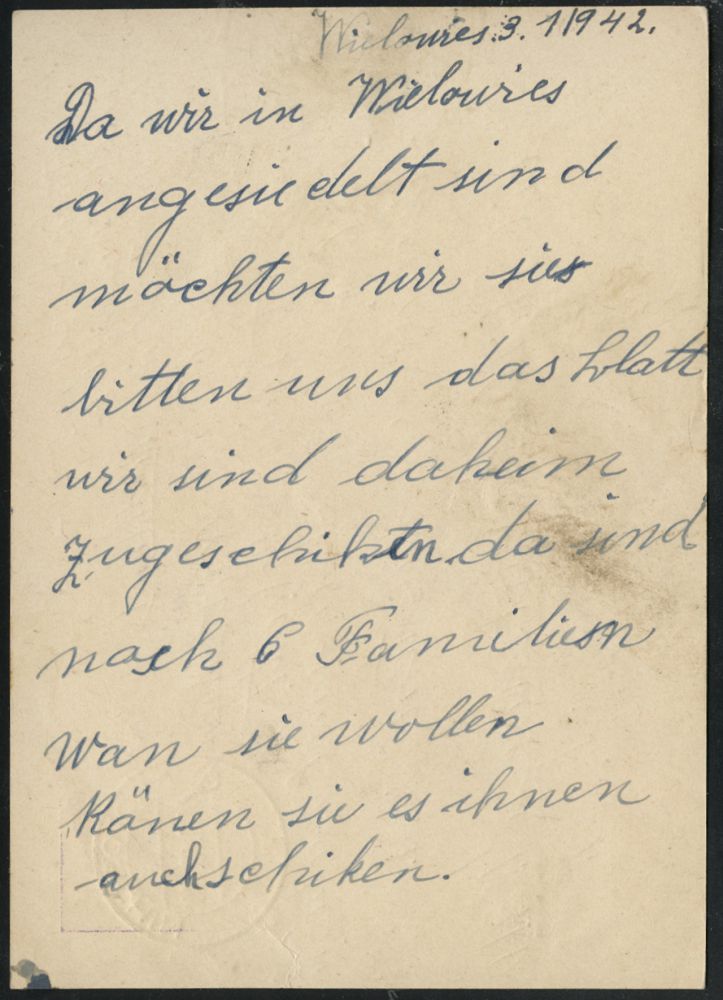 Wielowies. 3. 1 1942.
Da wir in Wielowies
angesiedelt sind
möchten wir sie
bitten uns das blatt
wir sind daheim
zugeschikten da sind
noch 6 Familien
wan sie wollen
könen sie es ihnen
auchschiken.